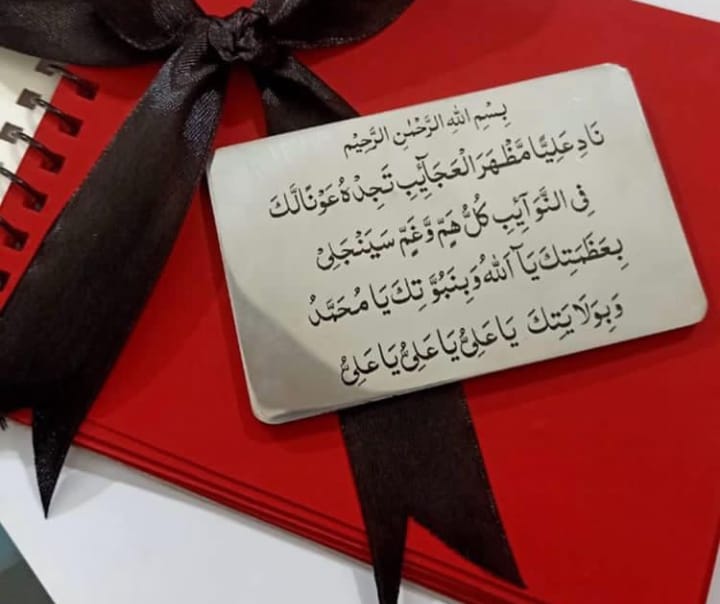 بِسْمِ اللهِ الرَّحْمٰنِ الرَّحِيْمِ
نَادِ عَلِيًّا مَّظْهَرَ الْعَجَآيِٕبِ تَجِدْهُ عَوْنًا لَّكَ
فِى النَّوَآيِٕبِ كُلُّ هَمٍّ وَّغَمٍّ سَيَنْجَلِىْ
بِعَظَمَتِكَ يَآ اَللهُ وَبِنَبُوَّتِكَ يَا مُحَمَّدُ
وَبِوَلَايَتِكَ يَا عَلِىُّ يَا عَلِىُّ يَا عَلِىُّ